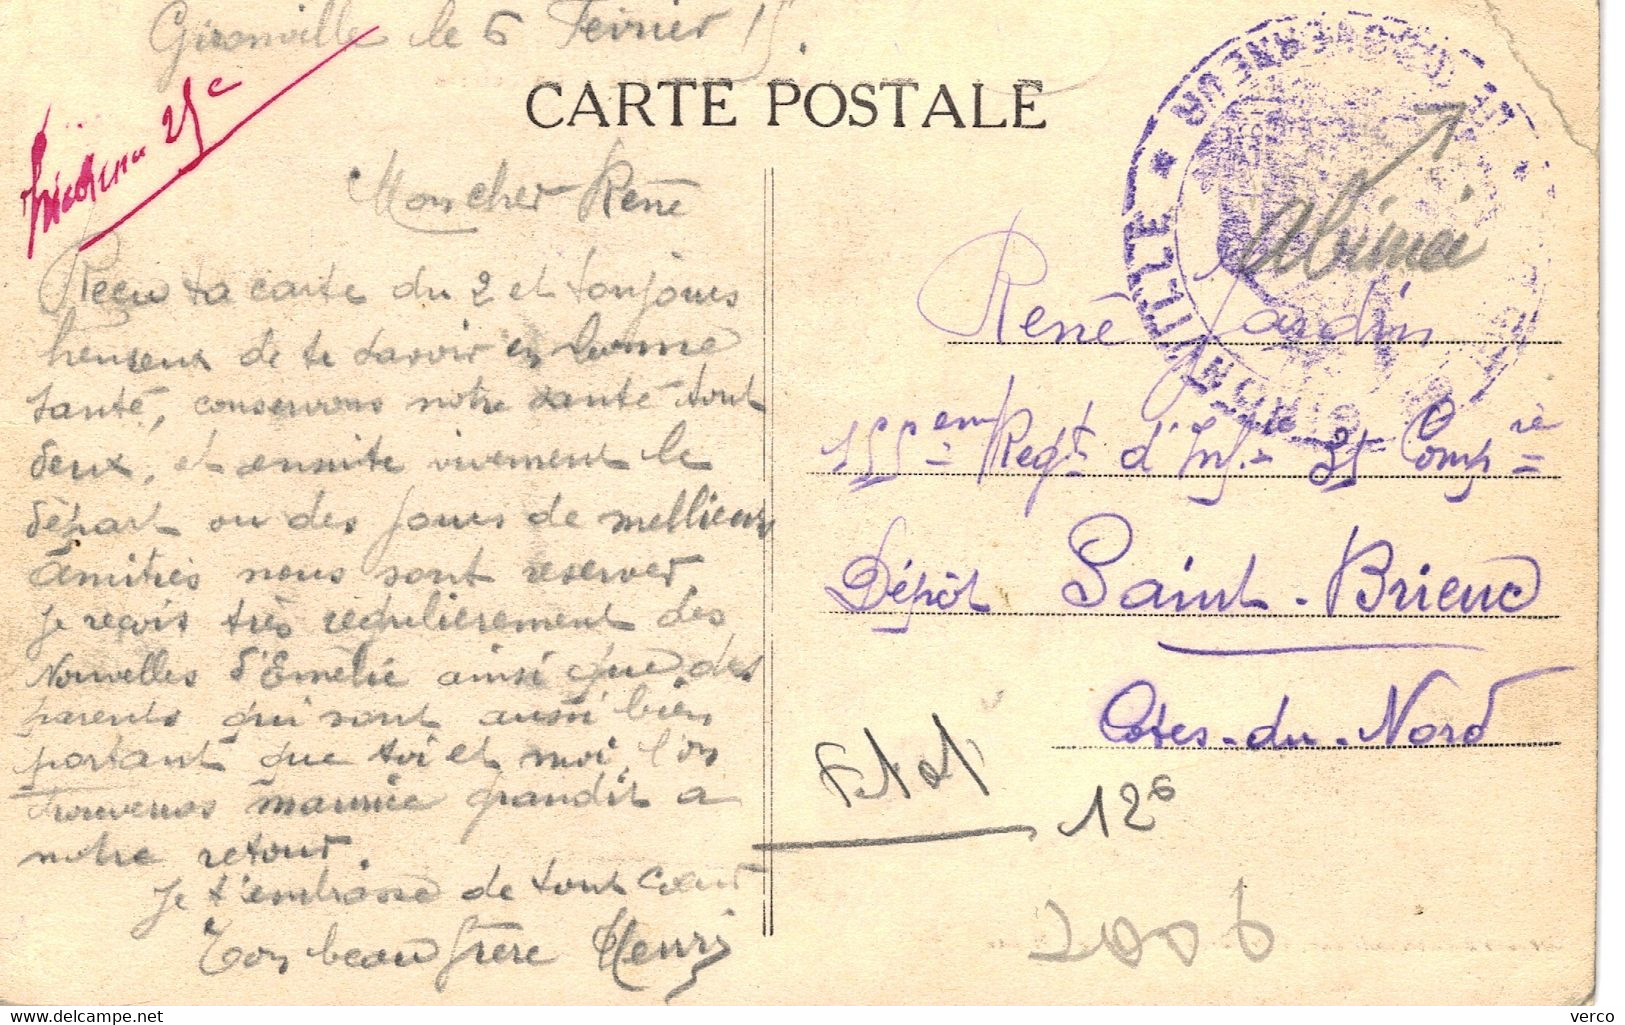 Gironville le 6 Fevrier 15.
CARTE POSTALE
25c
Mon cher René
Reçu ta carte du 2 et toujours
heureux de te savoir en bonne
santé, conservons notre santé tout
deux, et ensuite vivement le
départ ou des jours de mellieurs
amitiés nous sont reserver.
Je reçois très regulierement des
Nouvelles d'Emélie ainsi que des
parents qui sont aussi bien
portant que toi et moi, l'on
trouveras maurice grandit a
notre retour.
Je t'embrasse de tout cœur
Ton beau frère Henri
LE GOUVERNEUR
* GIRONVILLE *
abimé
René Jardin
155eme Regt d'Infie 31 Compie
Dépôt Saint-Brieuc
Cotes-du-Nord
126
2006
delcampe.net
verco